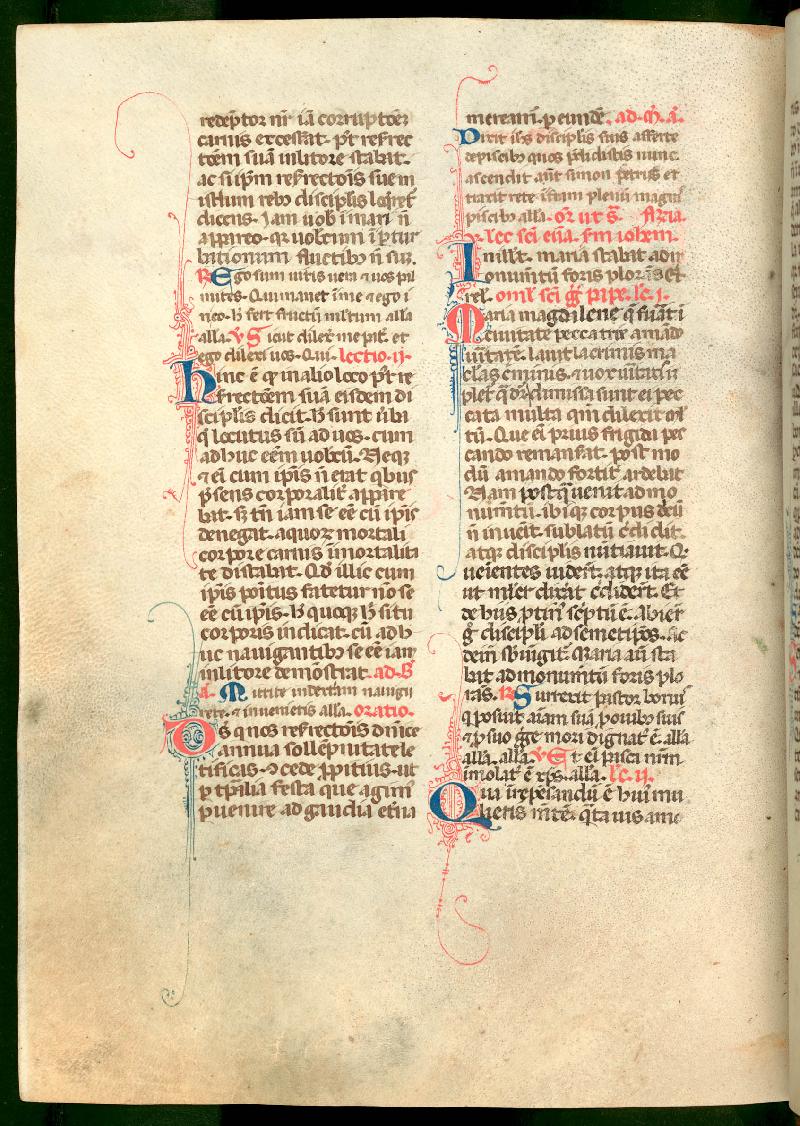 redeptor nr̄ iā corruptōeȝ
carnis excesserat. pt̄ resrrec
tōem suā ī litore stabat.
ac si ip̄m resrrectōis sue mi
isterium reb᷒ disciplis loq̄ret᷒
dicens. Iam uob᷒ ī mari n̄
appareo. qr uobcum ī ptur
bationum fluctib᷒ n̄ suȝ.
R Ego sum uitis uera ⁊ uos pal
mites. Qui manet ī me ⁊ ego ī
eo. h̄ fert fructū multum alla
alla. V Sicut dilex̄ me pat̄. et
ego dilexi uos. Qui. lectio .ij.
hinc ē q in alio loco pt̄ re
srrectōem suā eisdem di
sciplis dicit. h̄ sunt ūba
q̄ locutus sū ad uos. cum
adhuc eēm uobcū. Neqȝ
⁊ ei cum ip̄is n̄ erat qbus
p̄sens corporalit᷒ appare
bat. sȝ tn̄ iam se eē cū ip̄is
denegat. a quoꝝ mortali
corpore carnis īmortalita
te distabat. Qd̄ illic cum
ip̄is poitus fatetur nō se
eē cū ip̄is. h̄ quoqȝ h̄ situ
corporis indicat. cū adh
uc nauigantib᷒ se eē iam
in litore demōstrat. ad B
a. Mittite in dexteram nauigii
rete. ⁊ inuenietis alla. oratio.
Ds̄ quos resrrectōis dn̄ice
annua sollēpnitate le
tificas. ↄcede p̄pitius. ut
p tp̄alia festa que agim᷒
puenire ad gaudia et̄na
meream̄. p eundē. ad m̄. a.
Dixit ih̄s disciplis suis afferte
de piscib᷒ quos p̄ndidistis nunc.
ascendit aūt simon petrus et
traxit rete ī terram plenū magnis
piscib᷒ alla. or̄ ut s̄. feria.
v. lec sci eūa. sm̄ iohem.
In illt̄. maria stabat ad m
onumtū foris plorās. Et
rel̄. oml̄ sci ḡg pape. lc̄. i.
Maria magdalene q̄ fuāt ī
ciuitate peccatrix amādo
uītatē. lauit lacrimis ma
clas cīminis. ⁊ uox uītatis ī
plet᷒ q̄ dr̄. dimissa sunt ei pec
cata multa qm̄ dilexit ml̄
tū. Que ei prius frigida pec
cando remansat̄. post mo
dū amando fortit᷒ ardebat
Nam postq̄ uenit ad mo
numtū. ibiqȝ corpus dn̄i
n̄ inuēit. sublatū c̄didit.
atqȝ disciplis nūtiauit. Q
uēientes uiderēt. atqȝ ita eē
ut mulier dixāt c̄didert̄. Et
de hus ptin᷒ sc̄ptū ē. Abier̄t
g̊ discipli ad semetip̄os. Ac
dein̄ sbiūgit᷒. Maria aū sta
bat ad monumtū foris plo
rās. R Surrexit pastor bonus
q posuit aīam suā p ouib᷒ suis
⁊ p suo ḡge mori dignat᷒ ē. alla
alla. alla. V Et ei pasca nr̄m
imolat᷒ ē xp̄s. alla. lc̄. ij.
Qua ī re pesandū ē hui᷒ mu
lieris mēte. q̄ta uis amo